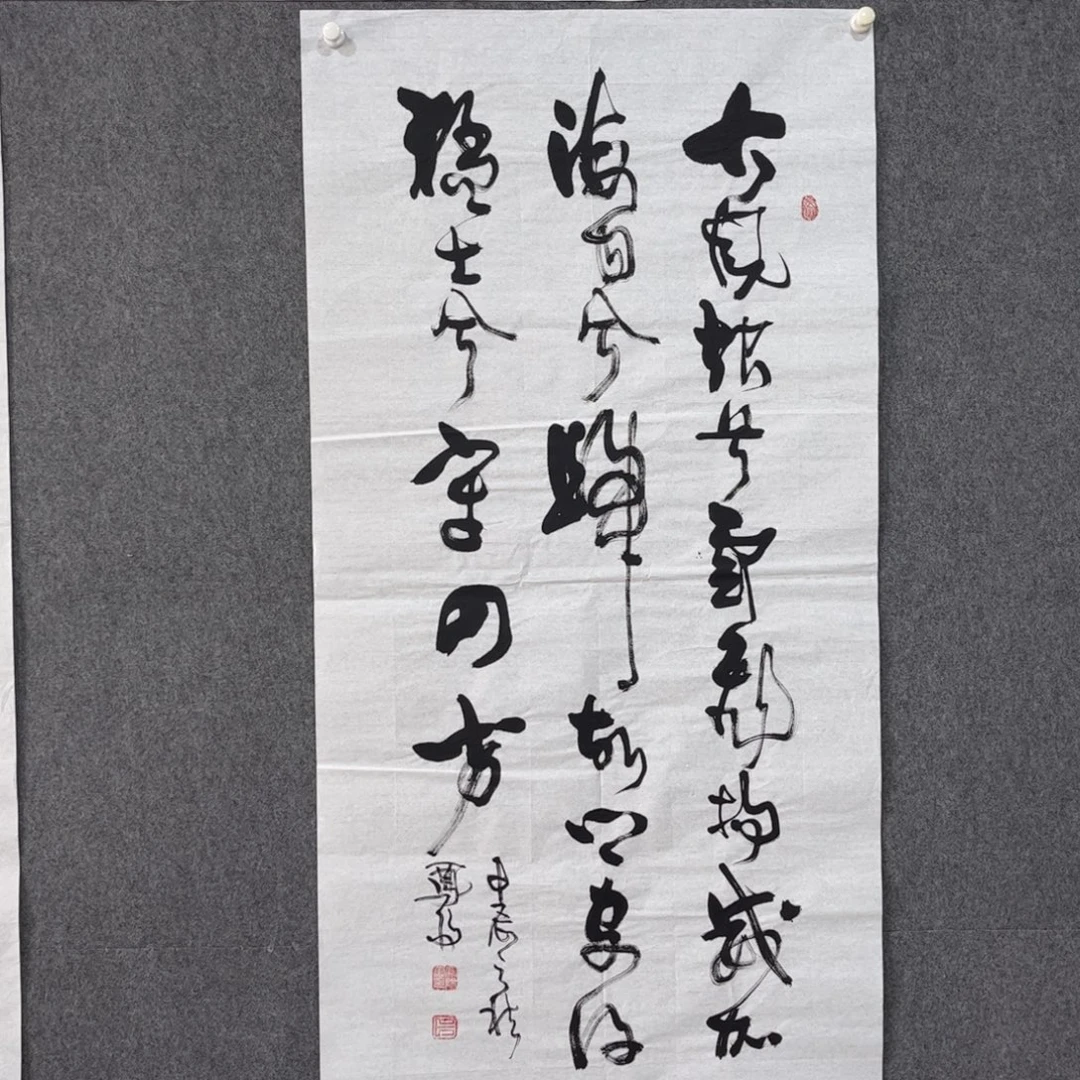 大風起兮雲飛揚威加
海内兮歸故鄉安得
猛士兮守四方
壬辰之秋